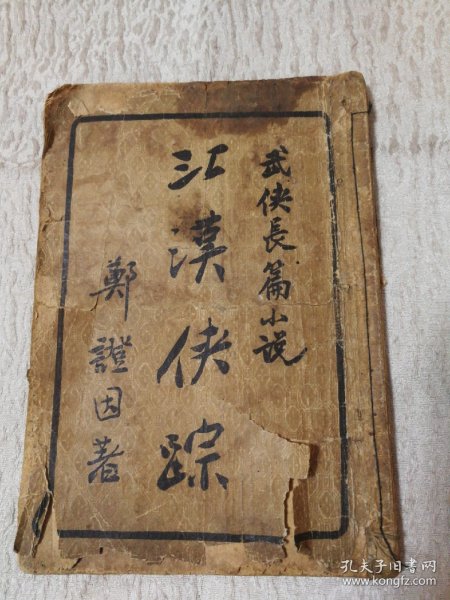 武侠長篇小説
江漢侠踪
鄭證因著
孔夫子旧书网
www.kongfz.com